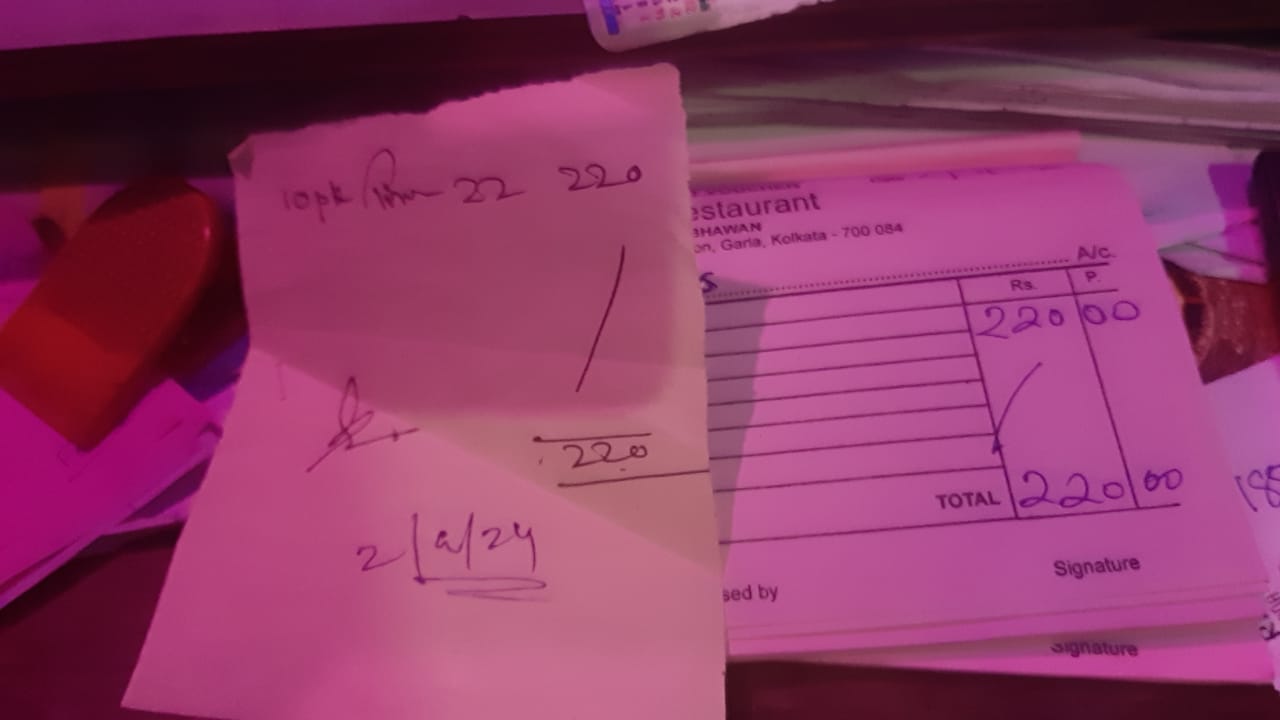 10pk 22 220
220
2/9/24
VOUCHER
estaurant
BHAWAN
on, Garia, Kolkata - 700 084
s
A/c.
Rs. P.
220 00
TOTAL 220 00
sed by
Signature
Signature